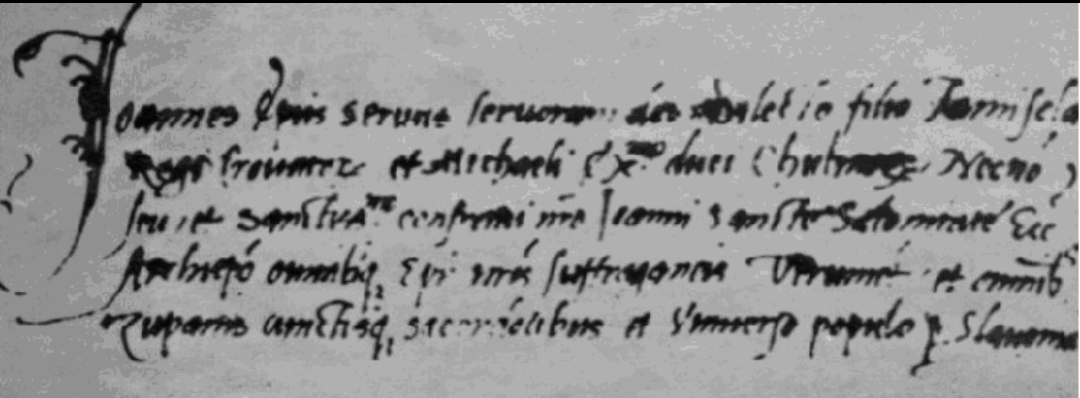 Joannes Ep̃us servus servorum dei dilecto filio Tamisclao
Regi Crovatorũ et Michaeli Exmo duci Chulmorũ Necnõ
seu et Sanctissme confratri nr̃o Joanni Sanctae Salonitane Ecc
Archiep̃o omnibusq, Epĩ nris suffraganeis Verumẽ et omnib
Zupanis cunctisq, sacerdotibus et Universo populo p. Slavonia